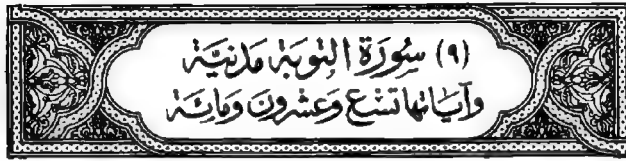 (٩) سُورَةُ التَّوبَةِ مَدَنِيَّة
وَآيَانُهَا تِسْعٌ وَعِشْرُونَ وَمِائَة